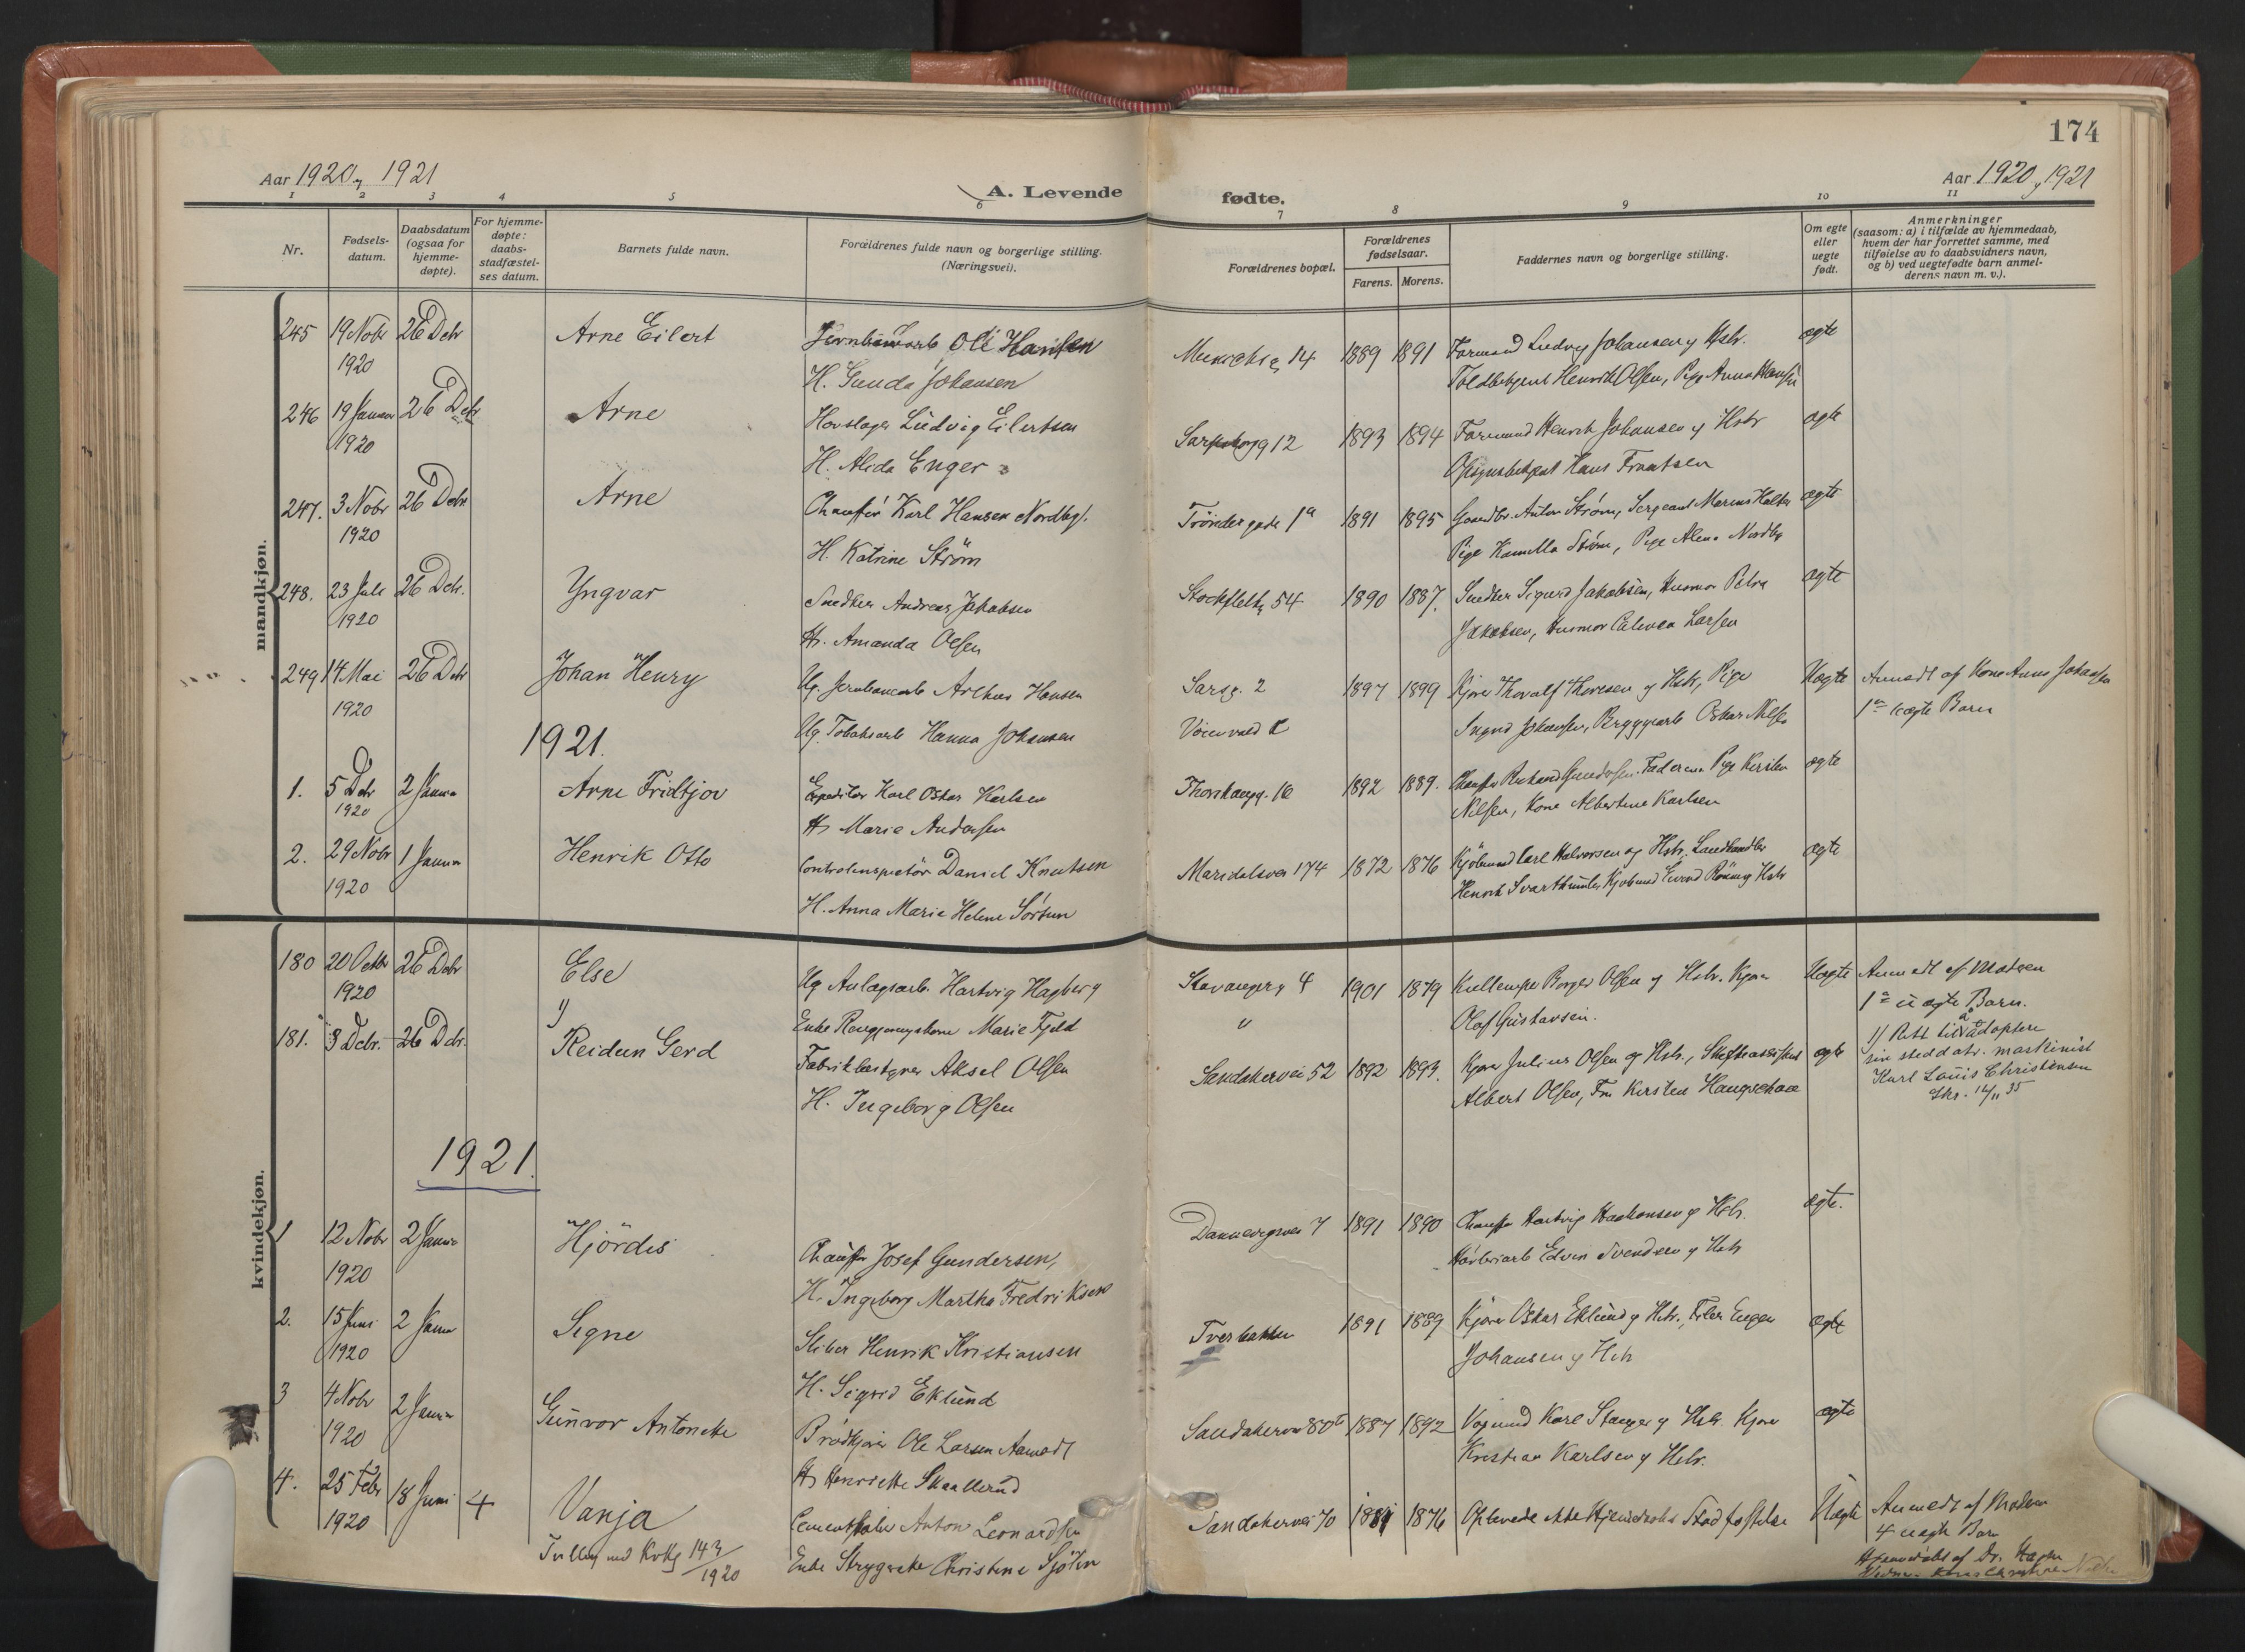 174
Aar 1920 og 1921
A. Levende fødte.
Aar 1920 og 1921
1 2 3 4 5 6 7 8 9 10 11
Nr.
Fødsels-
datum.
Daabsdatum
(ogsaa for
hjemme-
døpte).
For hjemme-
døpte:
daabs-
stadfæstel-
ses datum.
Barnets fulde navn.
Forældrenes fulde navn og borgerlige stilling.
(Næringsvei).
Forældrenes bopæl.
Forældrenes
fødselsaar.
Farens. Morens.
Faddernes navn og borgerlige stilling.
Om egte
eller
uegte
født.
Anmerkninger
(saasom: a) i tilfælde av hjemmedaab,
hvem der har forrettet samme, med
tilføielse av to daabsvidners navn,
og b) ved uegtefødte barn anmel-
derens navn m. v.).
mandkjøn.
245 19 Nobr 26 Debr Arne Eilert Ole Hansen 14 1889 1891 Formand Ludvig Johansen og Hstr. ægte
1920 H. Gunda Johansen Henrik Olsen, Pige Anna Hansen
246 19 Januar 26 Debr Arne Hovslager Ludvig Eilertsen Sarpsborgg 12 1893 1894 Formand Henrik Johansen og Hstr ægte
1920 H. Alida Enger Hans Frantsen
247. 3 Nobr 26 Debr Arne Chauffør Karl Hansen Nordby Trondergade 1a 1891 1895 Gaardbr. Anton Strøm, Sergeant Marius ægte
1920 H. Katrine Strøm Pige Kamilla Strøm, Pige Nordby
248. 23 Juli 26 Debr. Yngvar Snedker Andreas Jakobsen Stockfletg 54 1890 1887. Snedker Sigurd Jakobsen, Husmor Petra ægte
1920 H. Amanda Olsen Jakobsen, Husmor Larsen
249 14 Mai 26 Debr Johan Henry Ug. Jernbanearb Hansen Sarsg. 2 1897 1899 Kjører Thoralf Thoresen og Hstr, Pige Uegte Anmedt af Kone Anna Johansen
1920 Ug. Tobaksarb Hanna Johansen Ingrid Johansen, Bryggearb Oskar Nilsen 1ste uægte Barn
1921.
1. 5 Debr 2 Januar Arne Fridtjov Expeditør Karl Oskar Karlsen 16 1892 1889. Gundersen. Pige Kirsten ægte
1920 H. Marie Andersen Nilsen, Kone Albertine Karlsen
2. 29 Nobr 1 Januar Henrik Otto Daniel Knutsen Maridalsvei 174 1872 1876 Kjøbmand Carl Halvorsen og Hstr. Landhandler ægte
1920 H. Anna Marie Helene Sörtun Henrik Kjøbmand og Hstr
kvindekjøn.
180 20 Octbr 26 Debr Else Ug Anlægsarb. Hartvig Hagberg Stavangerg 4 1901 1879 Borger Olsen og Hstr. Kjører Uegte Anmedt af Moderen
1920 1) Enke Marie Fjeld " Olaf Gustavsen. 1ste uægte Barn.
181. 3 Debr. 26 Debr. Reidun Gerd Fabrikbestyrer Aksel Olsen Sandakervei 52 1892 1893. Kjører Julius Olsen og Hstr., ægte 1) Rett til å adoptere
H. Ingeborg Olsen Albert Olsen, Kirsten sin steddatr. maskinist
Karl Louis Christensen
14/11 35
1921.
1 12 Nobr 2 Januar Hjördis Chauffør Josef Gundersen, 7 1891 1890 Chauffør Hartvig Haakonsen og Hstr. ægte.
1920 H. Ingeborg Martha Fredriksen Edvin Svendsen og Hstr
2. 15 Juni 2 Januar Signe Sliber Henrik Kristiansen Tverbakken 1891 1889 Kjører Oskar Eklund og Hstr., Eugen ægte
1920 H. Sigrid Eklund Johansen og Hstr
3 4 Nobr 2 Januar Gunvor Antonette Brödkjører Ole Larsen Sandakervei 80 1887 1892 Karl Stanger og Hstr. Kjører ægte
1920 H. Henriette Skaallerud Kristian Karlsen og Hstr.
4. 25 Febr 18 Juni 4 Vanja Anton Leonard Sandakervei 70 1876 Stadfæstelse Uægte Anmedt af Moderen
1920 143/1920 Enke Strygerske Christine 4 uægte Barn
af Dr.